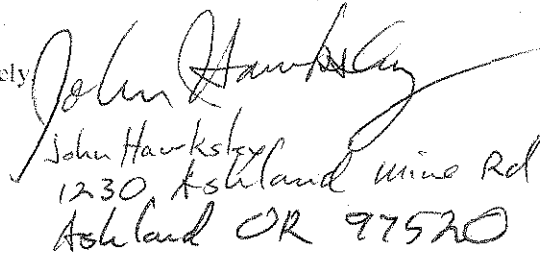 ely
John Hawksley
John Hawksley
1230 Ashland Mine Rd
Ashland OR 97520